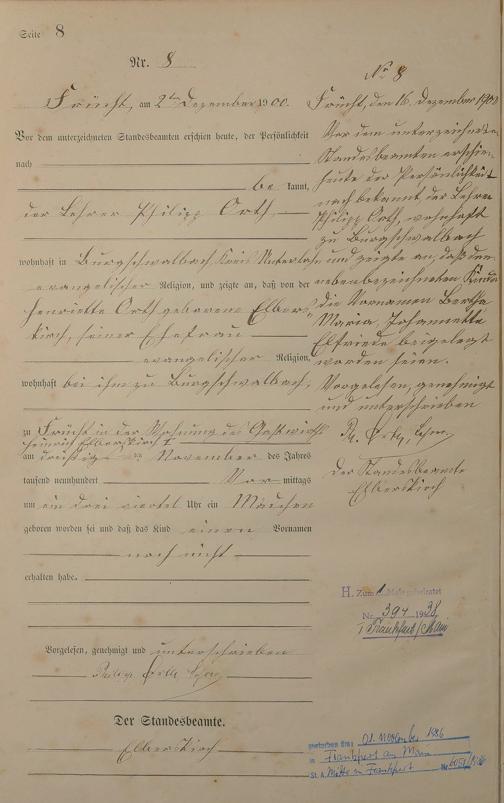 Seite 8
Nr. 8
Frücht, am 2ten Dezember 1900.
Vor dem unterzeichneten Standesbeamten erschien heute, der Persönlichkeit
nach
be kannt,
der Lehrer Philipp Orth
wohnhaft in Burgschwalbach Kreis Unterlahn
evangelischer Religion, und zeigte an, daß von der
Henriette Orth geborene Elbers-
kirch, seiner Ehefrau
evangelischer Religion,
wohnhaft bei ihm zu Burgschwalbach,
zu Frücht in der Wohnung des Gastwirths
Heinrich Elberskirch I
am dreißigsten November des Jahres
tausend neunhundert Vor mittags
um ein drei viertel Uhr ein Mädchen
geboren worden sei und daß das Kind einen Vornamen
noch nicht
erhalten habe.
Vorgelesen, genehmigt und unterschrieben
Philipp Orth Lehrer
Der Standesbeamte.
Elberskirch
No 8
Frücht, den 16. Dezember 1900
Vor dem unterzeichneten
Standesbeamten erschien
heute der Persönlichkeit
nach bekannt der Lehrer
Philipp Orth, wohnhaft
zu Burgschwalbach
und zeigte an, daß dem
nebenbezeichneten Kinde
die Vornamen Bertha
Maria Johannette
Elfriede beigelegt
worden seien.
Vorgelesen, genehmigt
und unterschrieben
Ph. Orth, Lehrer
Der Standesbeamte
Elberskirch
H. Zum 1. Male geheiratet
Nr. 394 1938
I Frankfurt/Main
gestorben am: 01. November 1986
in Frankfurt am Main
St. A. Mitte in Frankfurt Nr.